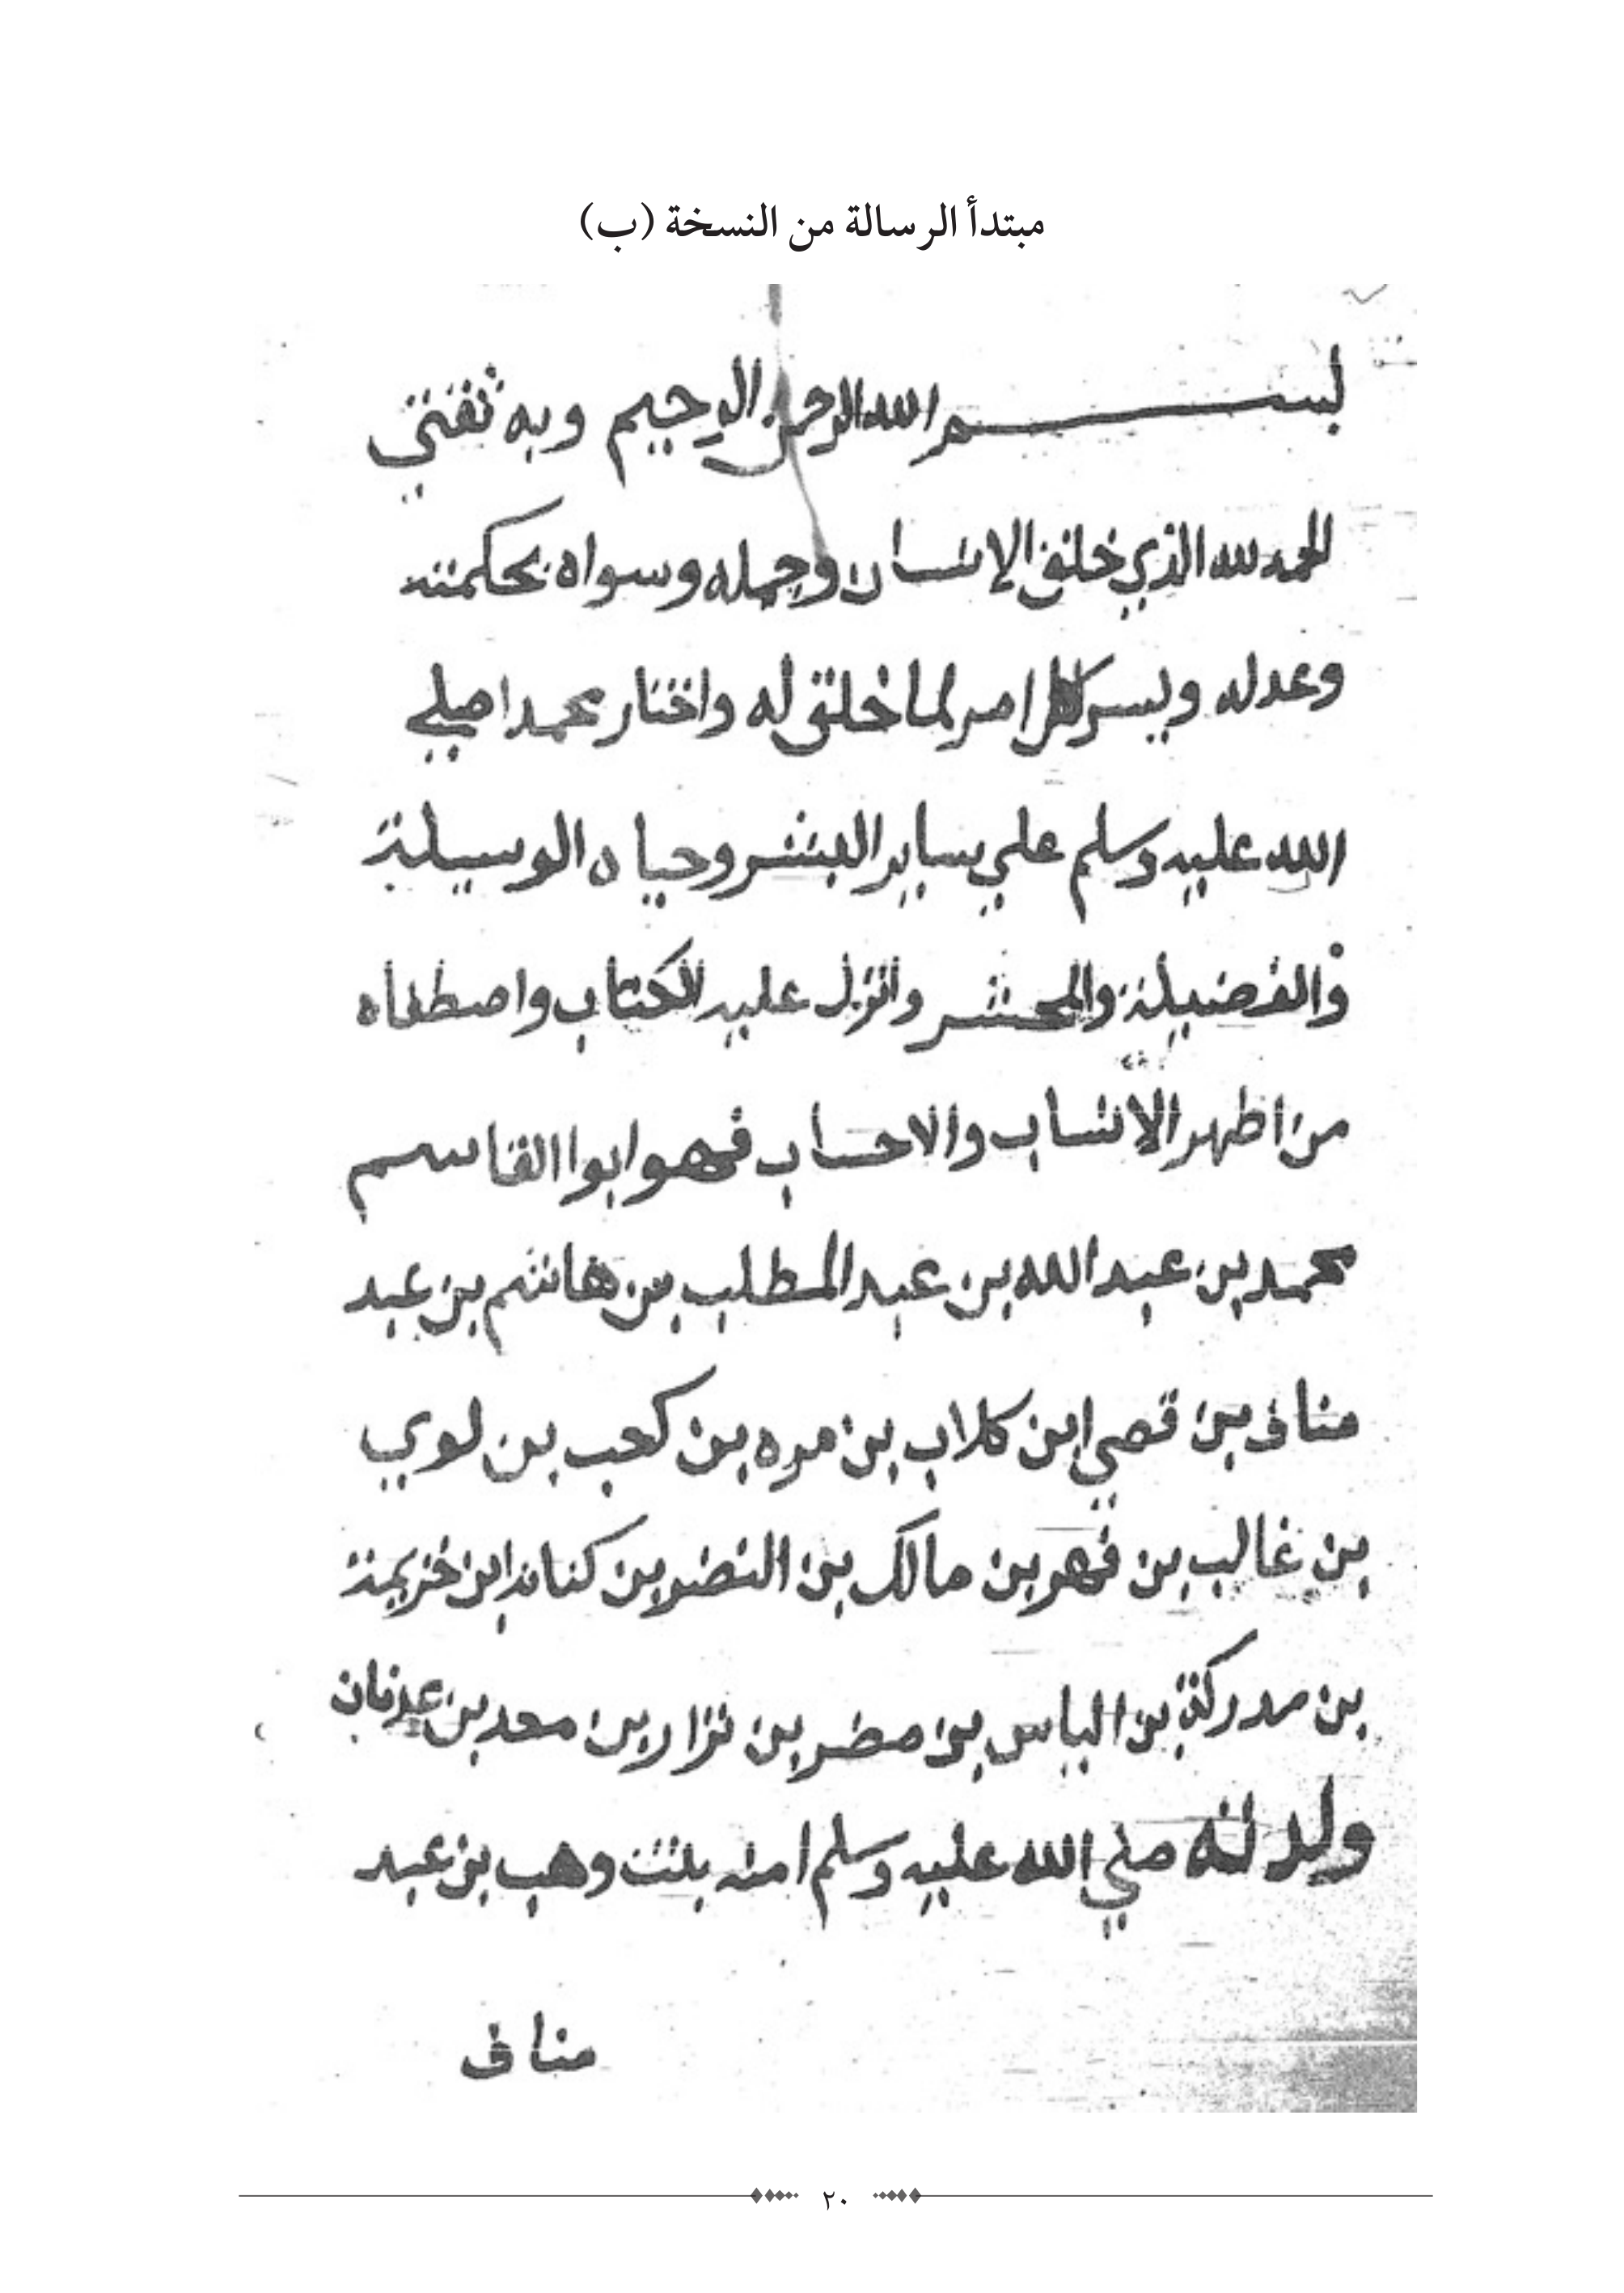 مبتدأ الرسالة من النسخة (ب)
بسم الله الرحمن الرحيم وبه ثقتي
الحمد لله الذي خلق الإنسان وجمله وسواه بحكمته
وعدله ويسر كل امر لما خلق له واختار محمدا صلي
الله عليه وسلم علي ساير البشر وحباه الوسيلة
والفضيلة والمحشر وانزل عليه الكتاب واصطفاه
من اطهر الانساب والاحساب فهو ابوا القاسم
محمد بن عبد الله بن عبد المطلب بن هاشم بن عبد
مناف بن قصي ابن كلاب بن مره بن كعب بن لوي
بن غالب بن فهر بن مالك بن النضر بن كنانه ابن خزيمة
بن مدركة بن الياس بن مضر بن نزار بن معد بن عدنان
ولدته صلي الله عليه وسلم امنه بنت وهب بن عبد
مناف
٢٠